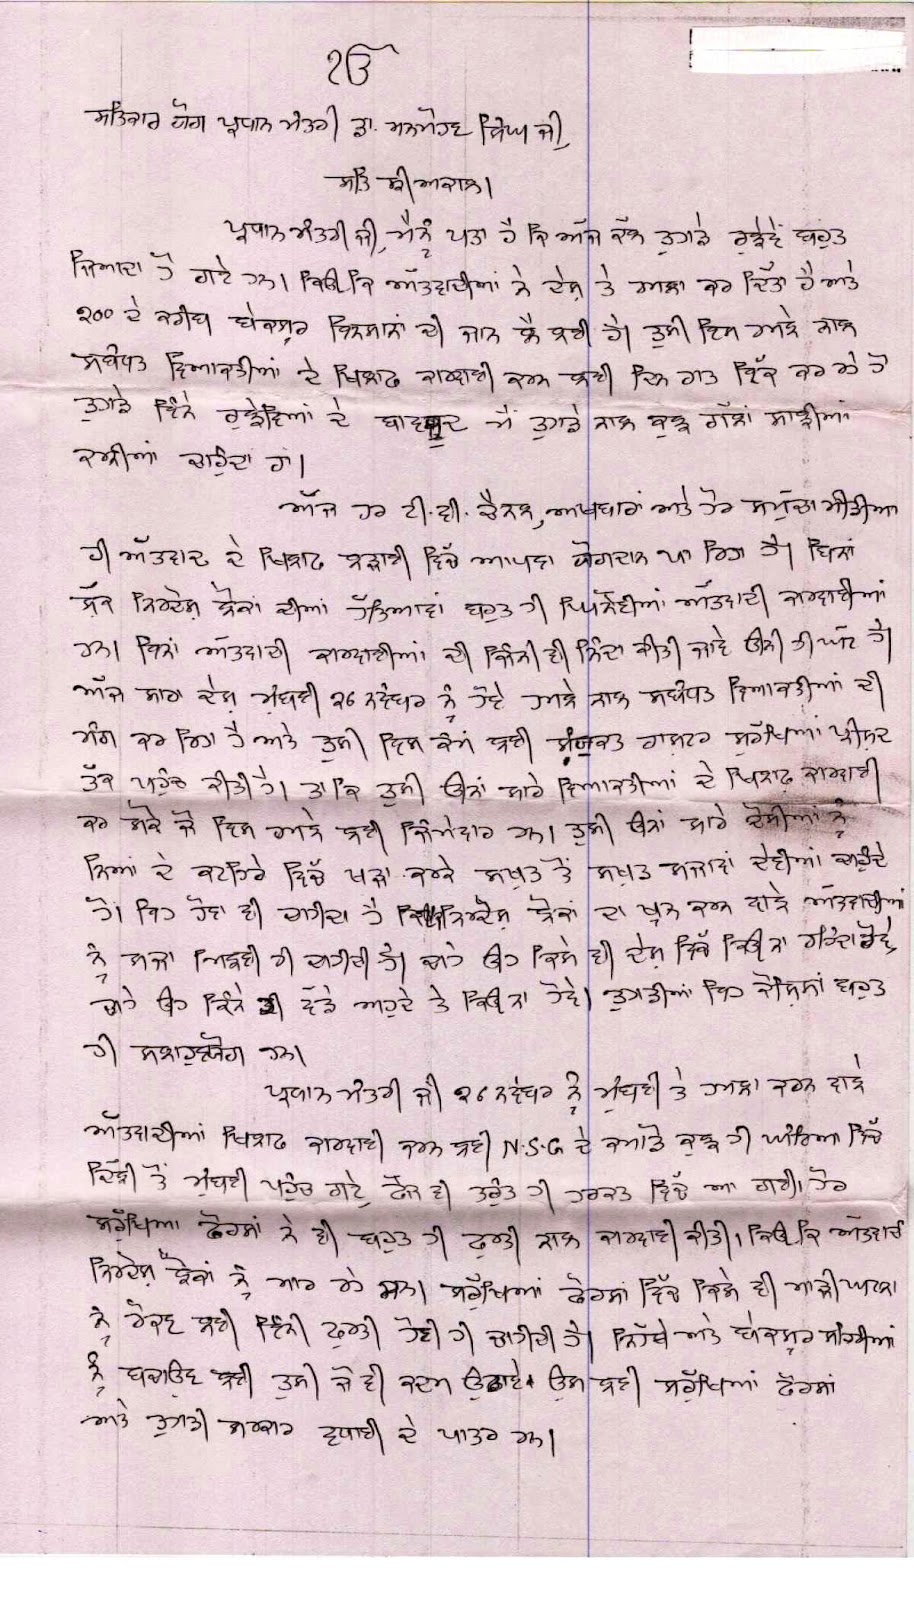 ੴ
ਸਤਿਕਾਰ ਯੋਗ ਪ੍ਰਧਾਨ ਮੰਤਰੀ ਡਾ. ਮਨਮੋਹਣ ਸਿੰਘ ਜੀ,
ਸਤਿ ਸ੍ਰੀ ਅਕਾਲ।
ਪ੍ਰਧਾਨ ਮੰਤਰੀ ਜੀ, ਮੈਨੂੰ ਪਤਾ ਹੈ ਕਿ ਅੱਜ ਕੱਲ ਤੁਹਾਡੇ ਰੁਝੇਵੇਂ ਬਹੁਤ
ਜਿਆਦਾ ਹੋ ਗਏ ਹਨ। ਕਿਉਂਕਿ ਅੱਤਵਾਦੀਆਂ ਨੇ ਦੇਸ਼ ਤੇ ਹਮਲਾ ਕਰ ਦਿੱਤਾ ਹੈ ਅਤੇ
੨੦੦ ਦੇ ਕਰੀਬ ਬੇਕਸੂਰ ਇਨਸਾਨਾਂ ਦੀ ਜਾਨ ਲੈ ਲਈ ਹੈ। ਤੁਸੀ ਇਸ ਹਮਲੇ ਨਾਲ
ਸਬੰਧਤ ਵਿਅਕਤੀਆਂ ਦੇ ਖਿਲਾਫ ਕਾਰਵਾਈ ਕਰਨ ਲਈ ਦਿਨ ਰਾਤ ਇੱਕ ਕਰ ਰਹੇ ਹੋ
ਤੁਹਾਡੇ ਇੰਨੇ ਰੁਝੇਵਿਆਂ ਦੇ ਬਾਵਜੂਦ ਮੈਂ ਤੁਹਾਡੇ ਨਾਲ ਕੁਝ ਗੱਲਾਂ ਸਾਂਝੀਆਂ
ਕਰਨੀਆਂ ਚਾਹੁੰਦਾ ਹਾਂ।
ਅੱਜ ਹਰ ਟੀ.ਵੀ. ਚੈਨਲ, ਅਖਬਾਰਾਂ ਅਤੇ ਹੋਰ ਸਮੁੱਚਾ ਮੀਡੀਆ
ਹੀ ਅੱਤਵਾਦ ਦੇ ਖਿਲਾਫ ਲੜਾਈ ਵਿੱਚ ਆਪਣਾ ਯੋਗਦਾਨ ਪਾ ਰਿਹਾ ਹੈ। ਬਿਨਾਂ
ਸ਼ੱਕ ਨਿਰਦੋਸ਼ ਲੋਕਾਂ ਦੀਆਂ ਹੱਤਿਆਵਾਂ ਬਹੁਤ ਹੀ ਘਿਨੌਣੀਆਂ ਅੱਤਵਾਦੀ ਕਾਰਵਾਈਆਂ
ਹਨ। ਇਨਾਂ ਅੱਤਵਾਦੀ ਕਾਰਵਾਈਆਂ ਦੀ ਜਿੰਨੀ ਵੀ ਨਿੰਦਾ ਕੀਤੀ ਜਾਵੇ ਉਨੀ ਹੀ ਘੱਟ ਹੈ।
ਅੱਜ ਸਾਰਾ ਦੇਸ਼ ਮੁੰਬਈ ੨੬ ਨਵੰਬਰ ਨੂੰ ਹੋਏ ਹਮਲੇ ਨਾਲ ਸਬੰਧਤ ਵਿਅਕਤੀਆਂ ਦੀ
ਮੰਗ ਕਰ ਰਿਹਾ ਹੈ ਅਤੇ ਤੁਸੀ ਇਸ ਕੰਮ ਲਈ ਸੰਯੁਕਤ ਰਾਸਟਰ ਸੁਰੱਖਿਆ ਪ੍ਰੀਸ਼ਦ
ਤੱਕ ਪਹੁੰਚ ਕੀਤੀ ਹੈ। ਤਾ ਕਿ ਤੁਸੀ ਉਨਾਂ ਸਾਰੇ ਵਿਅਕਤੀਆਂ ਦੇ ਖਿਲਾਫ ਕਾਰਵਾਈ
ਕਰ ਸਕੋ ਜੋ ਇਸ ਹਮਲੇ ਲਈ ਜਿੰਮੇਵਾਰ ਹਨ। ਤੁਸੀ ਉਨਾਂ ਸਾਰੇ ਦੋਸੀਆਂ ਨੂੰ
ਨਿਆਂ ਦੇ ਕਟਹਿਰੇ ਵਿੱਚ ਖੜਾ ਕਰਕੇ ਸਖਤ ਤੋਂ ਸਖ਼ਤ ਸਜਾਵਾਂ ਦੇਣੀਆਂ ਚਾਹੁੰਦੇ
ਹੋ। ਇਹ ਹੋਣਾ ਵੀ ਚਾਹੀਦਾ ਹੈ ਕਿ ਨਿਰਦੋਸ਼ ਲੋਕਾਂ ਦਾ ਖੂਨ ਕਰਨ ਵਾਲੇ ਅੱਤਵਾਦੀਆਂ
ਨੂੰ ਸਜਾ ਮਿਲਣੀ ਹੀ ਚਾਹੀਦੀ ਹੈ। ਚਾਹੇ ਉਹ ਕਿਸੇ ਵੀ ਦੇਸ਼ ਵਿੱਚ ਕਿਉਂ ਨਾ ਰਹਿੰਦਾ ਹੋਵੇ,
ਚਾਹੇ ਉਹ ਕਿੰਨੇ ਹੀ ਵੱਡੇ ਅਹੁਦੇ ਤੇ ਕਿਉਂ ਨਾ ਹੋਵੇ। ਤੁਹਾਡੀਆਂ ਇਹ ਕੋਸ਼ਿਸ਼ਾਂ ਬਹੁਤ
ਹੀ ਸਲਾਹੁਣਯੋਗ ਹਨ।
ਪ੍ਰਧਾਨ ਮੰਤਰੀ ਜੀ ੨੬ ਨਵੰਬਰ ਨੂੰ ਮੁੰਬਈ ਤੇ ਹਮਲਾ ਕਰਨ ਵਾਲੇ
ਅੱਤਵਾਦੀਆਂ ਖਿਲਾਫ ਕਾਰਵਾਈ ਕਰਨ ਲਈ N.S.G ਦੇ ਕਮਾਂਡੋ ਕੁਝ ਹੀ ਘੰਟਿਆ ਵਿੱਚ
ਦਿੱਲੀ ਤੋਂ ਮੁੰਬਈ ਪਹੁੰਚ ਗਏ, ਫੌਜ ਵੀ ਤੁਰੰਤ ਹੀ ਹਰਕਤ ਵਿੱਚ ਆ ਗਈ। ਹੋਰ
ਸੁਰੱਖਿਆ ਫੋਰਸਾਂ ਨੇ ਵੀ ਬਹੁਤ ਹੀ ਫੁਰਤੀ ਨਾਲ ਕਾਰਵਾਈ ਕੀਤੀ। ਕਿਉਂ ਕਿ ਅੱਤਵਾਦੀ
ਨਿਰਦੋਸ਼ ਲੋਕਾਂ ਨੂੰ ਮਾਰ ਰਹੇ ਸਨ। ਸੁਰੱਖਿਆਂ ਫੋਰਸਾਂ ਵਿੱਚ ਕਿਸੇ ਵੀ ਮਾੜੀ ਘਟਨਾ
ਨੂੰ ਰੋਕਣ ਲਈ ਇੰਨੀ ਫੁਰਤੀ ਹੋਣੀ ਹੀ ਚਾਹੀਦੀ ਹੈ। ਨਿਹੱਥੇ ਅਤੇ ਬੇਕਸੂਰ ਸ਼ਹਿਰੀਆਂ
ਨੂੰ ਬਚਾਉਣ ਲਈ ਤੁਸੀ ਜੋ ਵੀ ਕਦਮ ਉਠਾਏ ਉਸ ਲਈ ਸੁਰੱਖਿਆਂ ਫੋਰਸਾਂ
ਅਤੇ ਤੁਹਾਡੀ ਸਰਕਾਰ ਵਧਾਈ ਦੇ ਪਾਤਰ ਹਨ।